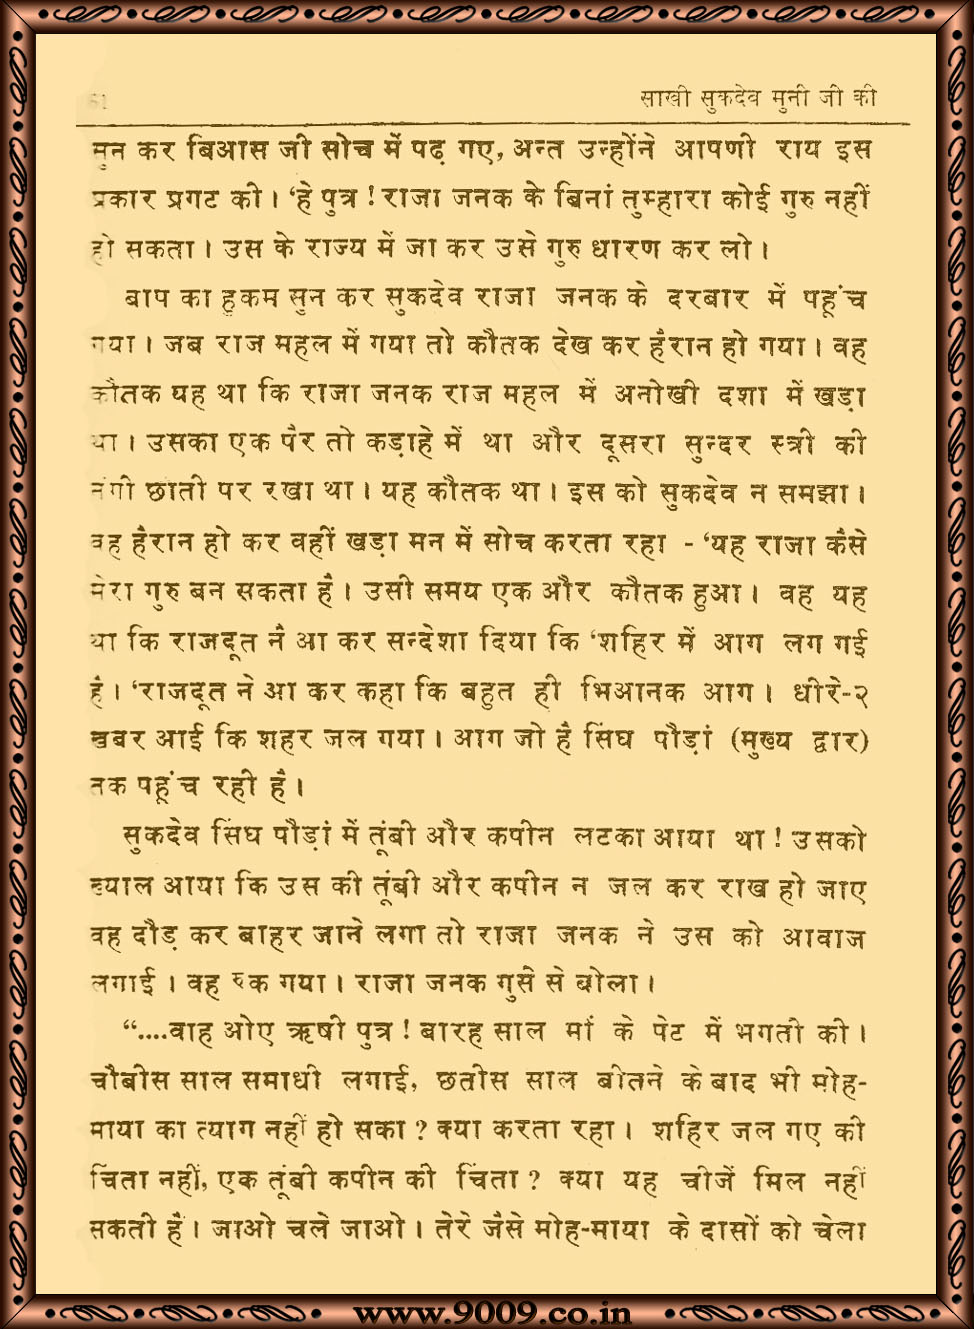 साखी सुकदेव मुनी जी की
सुन कर बिआस जी सोच में पढ़ गए, अन्त उन्होंने आपणी राय इस
प्रकार प्रगट की। ‘हे पुत्र ! राजा जनक के बिनां तुम्हारा कोई गुरु नहीं
हो सकता। उस के राज्य में जा कर उसे गुरु धारण कर लो।
बाप का हुकम सुन कर सुकदेव राजा जनक के दरबार में पहूंच
गया। जब राज महल में गया तो कौतक देख कर हैरान हो गया। वह
कौतक यह था कि राजा जनक राज महल में अनोखी दशा में खड़ा
था। उसका एक पैर तो कड़ाहे में था और दूसरा सुन्दर स्त्री की
नंगी छाती पर रखा था। यह कौतक था। इस को सुकदेव न समझा।
वह हैरान हो कर वहीं खड़ा मन में सोच करता रहा - ‘यह राजा कैसे
मेरा गुरु बन सकता है। उसी समय एक और कौतक हुआ। वह यह
था कि राजदूत नै आ कर सन्देशा दिया कि ‘शहिर में आग लग गई
है। ‘राजदूत ने आ कर कहा कि बहुत ही भिआनक आग। धीरे-२
खबर आई कि शहर जल गया। आग जो है सिंघ पौड़ां (मुख्य द्वार)
तक पहूंच रही है।
सुकदेव सिंघ पौड़ां में तूंबी और कपीन लटका आया था ! उसको
ख्याल आया कि उस की तूंबी और कपीन न जल कर राख हो जाए
वह दौड़ कर बाहर जाने लगा तो राजा जनक ने उस को आवाज
लगाई। वह रुक गया। राजा जनक गुसे से बोला।
“....वाह ओए ऋषी पुत्र ! बारह साल मां के पेट में भगती की।
चौबीस साल समाधी लगाई, छतीस साल बीतने के बाद भी मोह-
माया का त्याग नहीं हो सका ? क्या करता रहा। शहिर जल गए की
चिंता नहीं, एक तूंबी कपीन की चिंता ? क्या यह चीजें मिल नहीं
सकती हैं। जाओ चले जाओ। तेरे जैसे मोह-माया के दासों को चेला
www.9009.co.in